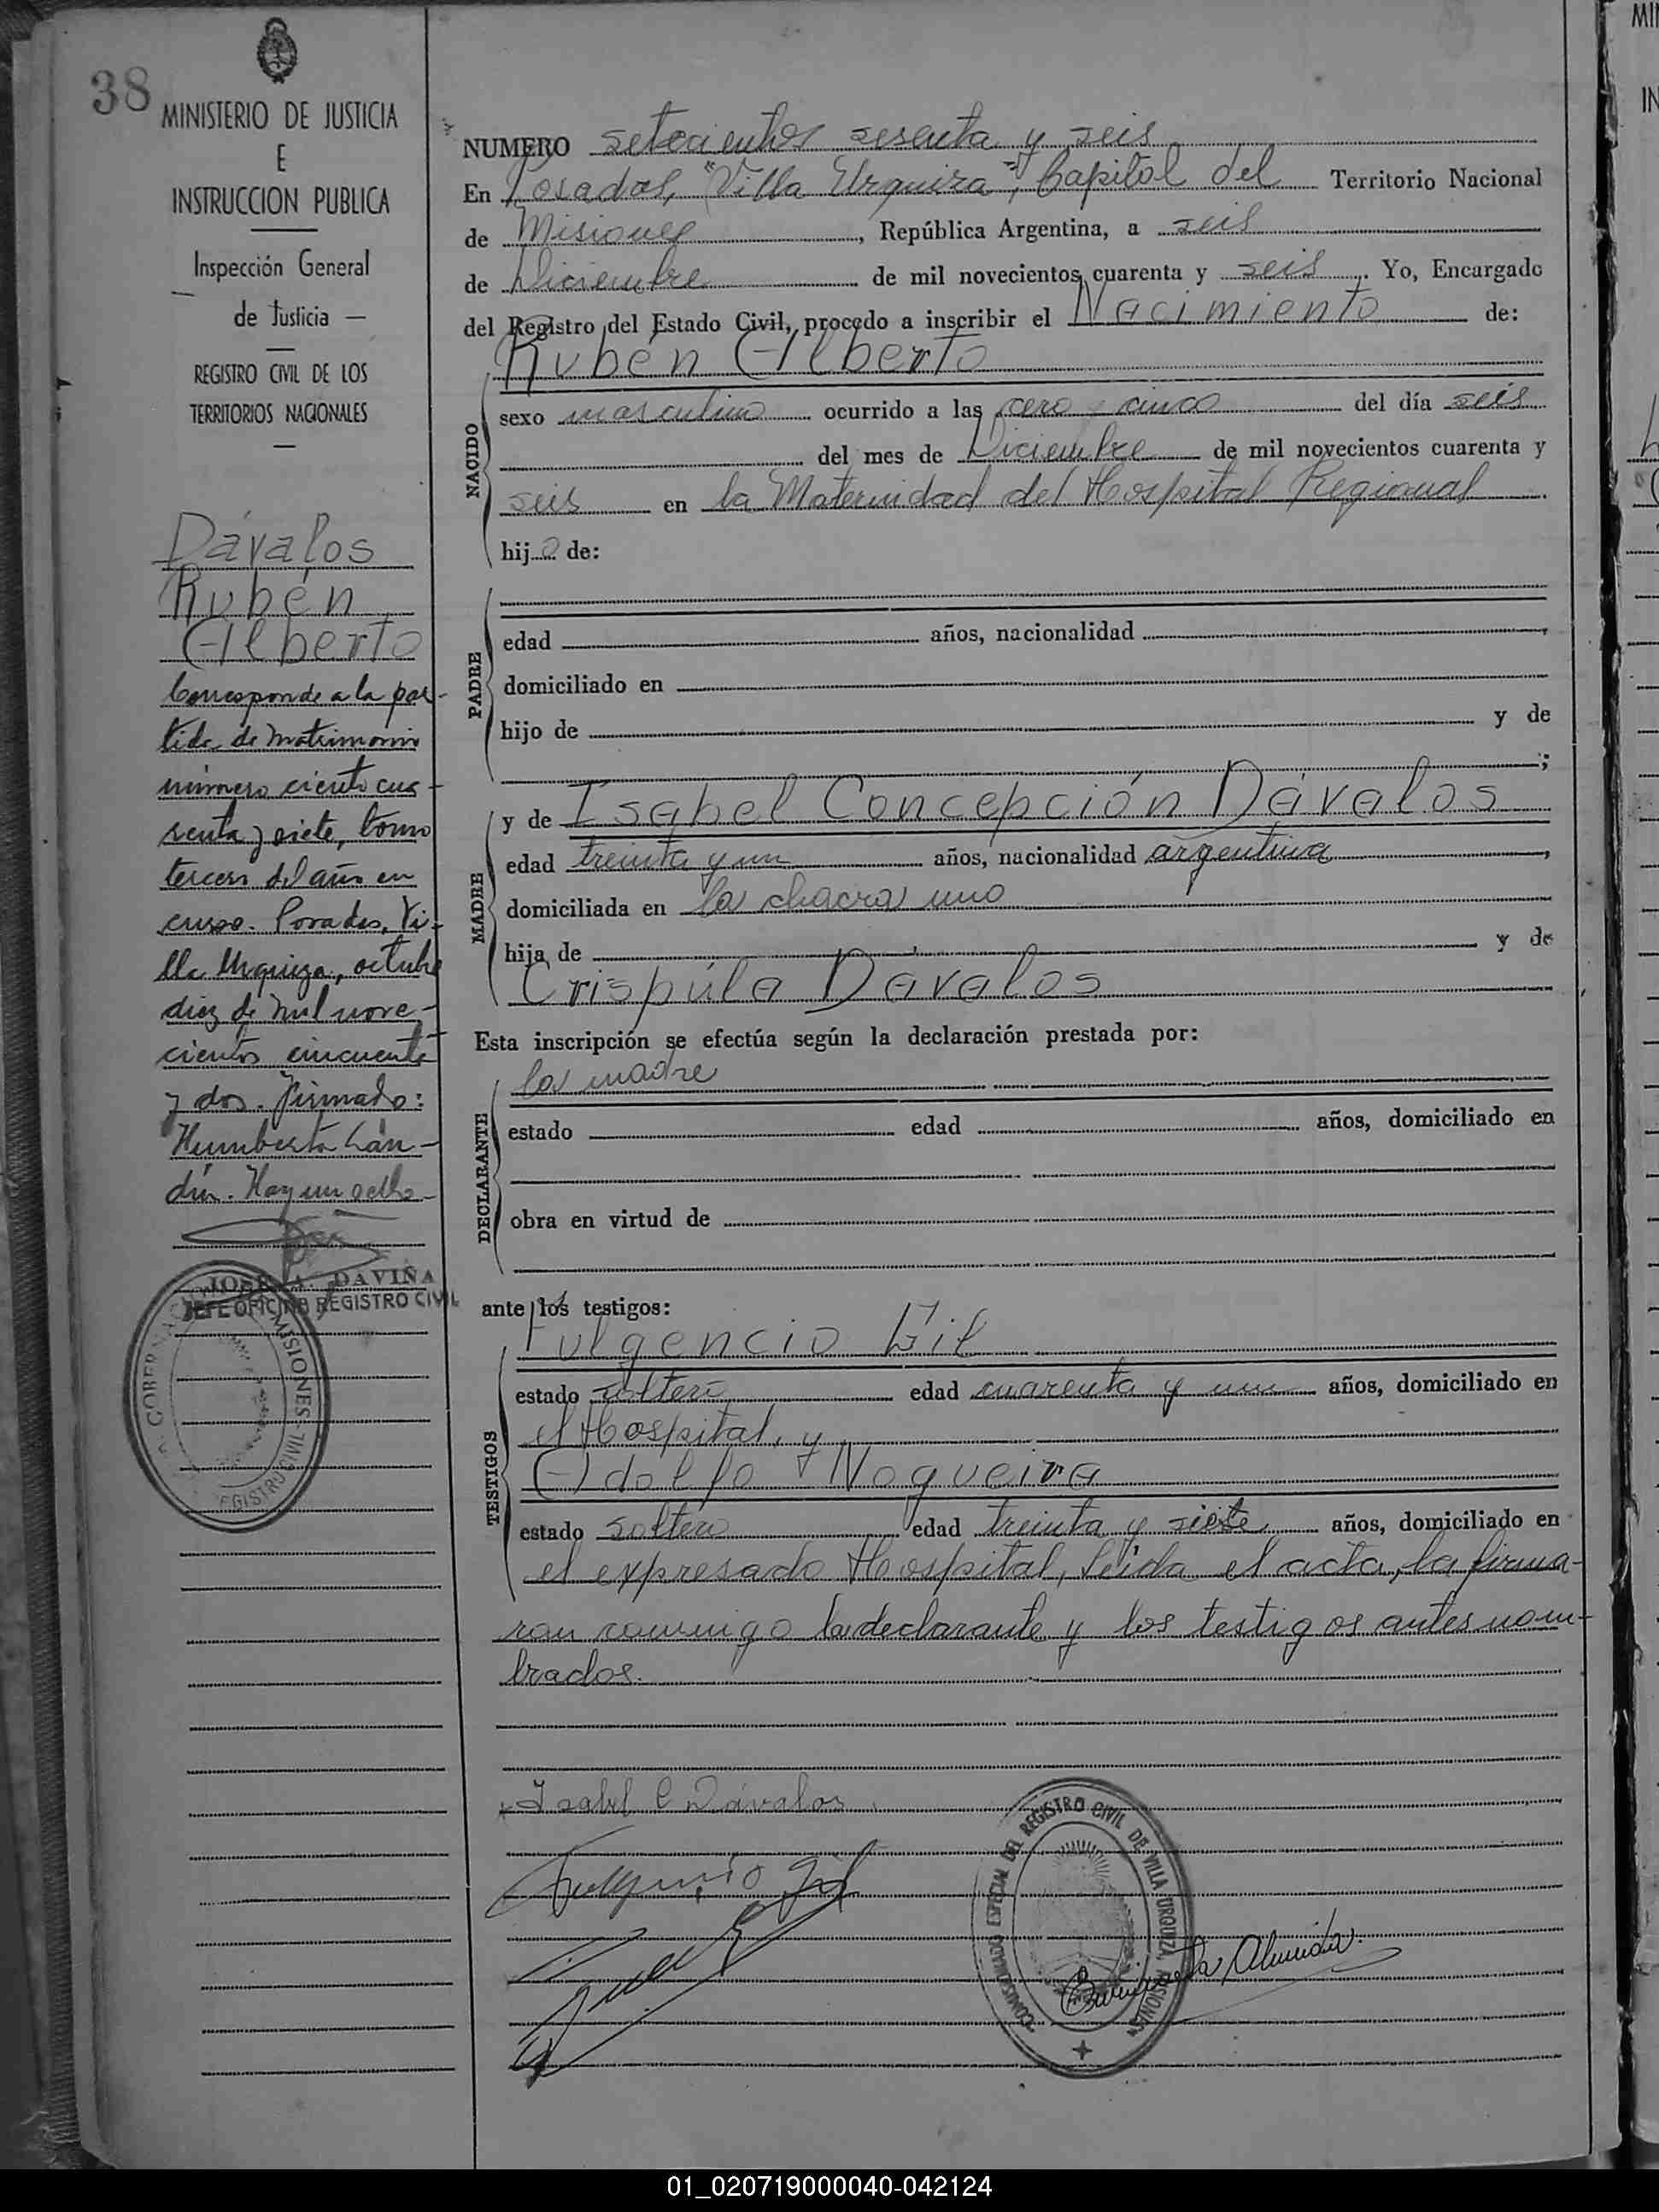 38
MINISTERIO DE JUSTICIA
E
INSTRUCCION PUBLICA
Inspección General
de Justicia —
REGISTRO CIVIL DE LOS
TERRITORIOS NACIONALES
Dávalos
Rubén
Alberto
Corresponde a la par-
tida de matrimonio
número ciento cua-
renta y siete, tomo
tercero del año en
curso. Posadas, Vi-
lla Urquiza, octubre
diez de mil nove-
cientos cincuenta
y dos. Firmado:
Humberto Lan-
din. Hay un sello
JOSE A. DAVIÑA
JEFE OFICINA REGISTRO CIVIL
GOBERNACION MISIONES - REGISTRO CIVIL
NUMERO setecientos sesenta y seis
En Posadas, "Villa Urquiza", Capital del Territorio Nacional
de Misiones, República Argentina, a seis
de Diciembre de mil novecientos cuarenta y seis. Yo, Encargado
del Registro del Estado Civil, procedo a inscribir el Nacimiento de:
Rubén Alberto
NACIDO
sexo masculino ocurrido a las cero y cinco del día seis
del mes de Diciembre de mil novecientos cuarenta y
seis en la Maternidad del Hospital Regional
hijo de:
PADRE
edad años, nacionalidad
domiciliado en
hijo de y de
;
MADRE
y de Isabel Concepción Dávalos
edad treinta y un años, nacionalidad argentina,
domiciliada en la chacra uno
hija de y de
Crispúla Dávalos
Esta inscripción se efectúa según la declaración prestada por:
la madre
DECLARANTE
estado edad años, domiciliado en
obra en virtud de
ante los testigos:
TESTIGOS
Fulgencio Gil
estado soltero edad cuarenta y un años, domiciliado en
el Hospital, y
Adolfo Nogueira
estado soltero edad treinta y siete años, domiciliado en
el expresado Hospital, leida el acta, la firma-
ron conmigo la declarante y los testigos antes nom-
brados.
Isabel C Dávalos
Fulgencio Gil
COMISARIADO ESPECIAL DEL REGISTRO CIVIL DE VILLA URQUIZA MISIONES
Almida
01_020719000040-042124